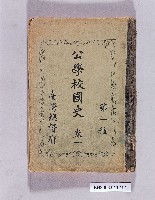 公學校國史 卷一
第一種
臺灣總督府